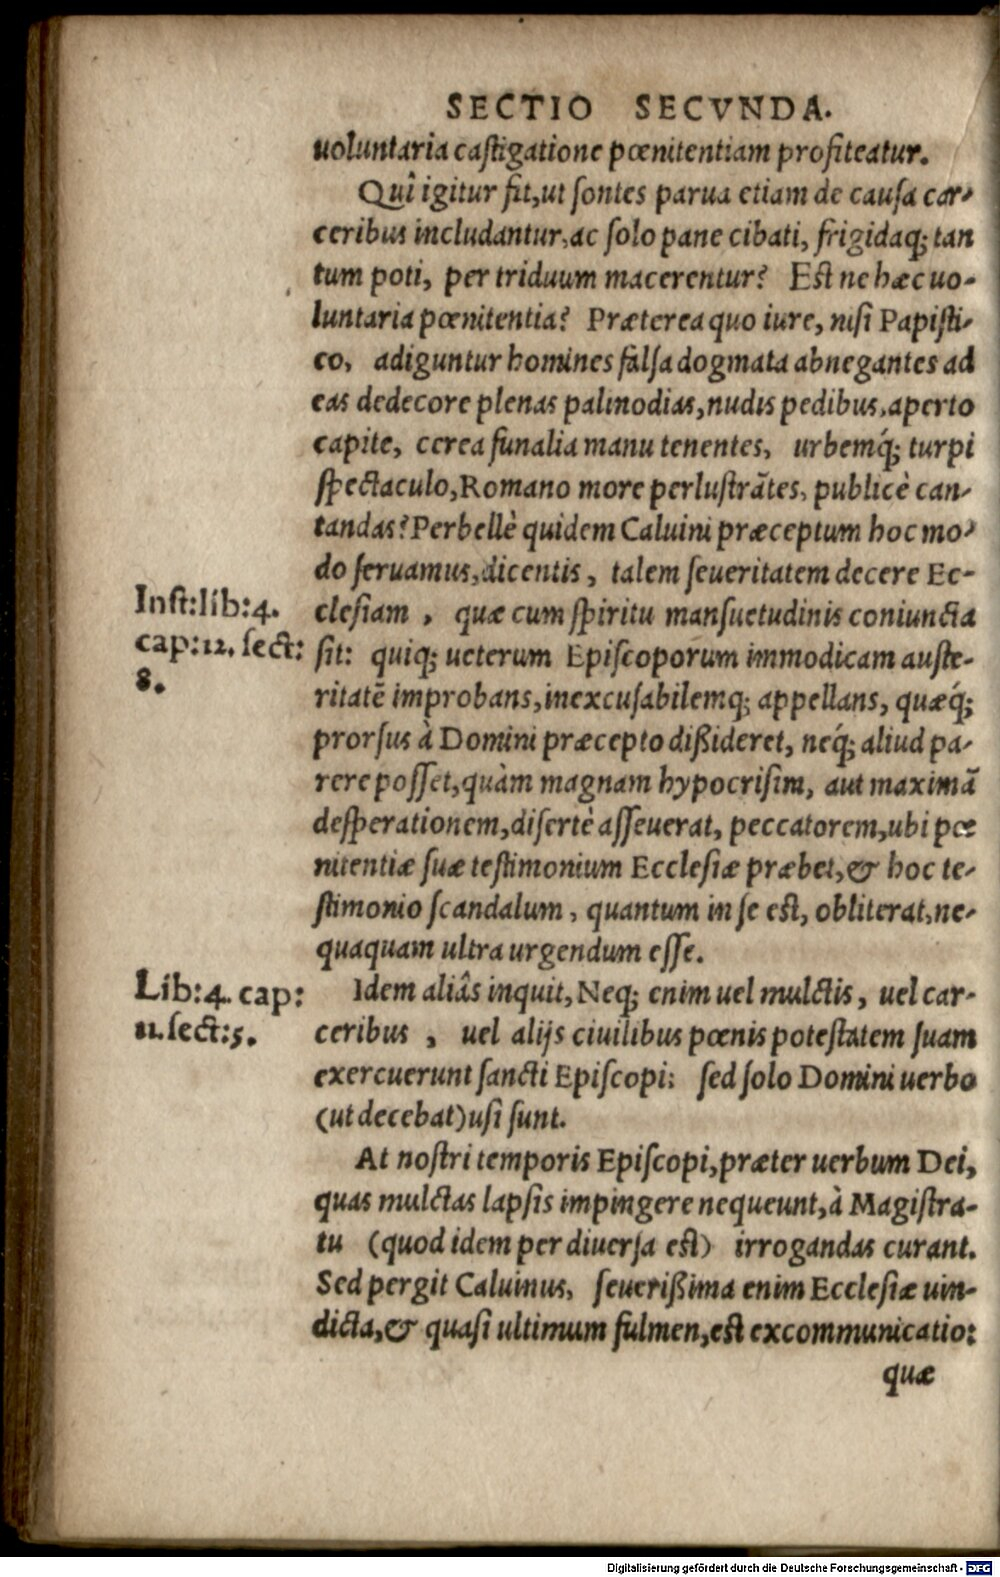 SECTIO SECVNDA.
uoluntaria castigatione pœnitentiam profiteatur.
Quî igitur fit, ut sontes parua etiam de causa car-
ceribus includantur, ac solo pane cibati, frigidaq; tan
tum poti, per triduum macerentur? Est ne hæc uo-
luntaria pœnitentia? Præterea quo iure, nisi Papisti-
co, adiguntur homines falsa dogmata abnegantes ad
eas dedecore plenas palinodias, nudis pedibus, aperto
capite, cerea funalia manu tenentes, urbemq́; turpi
spectaculo, Romano more perlustrātes, publicè can-
tandas? Perbellè quidem Caluini præceptum hoc mo-
do seruamus, dicentis, talem seueritatem decere Ec-
Inst: lib: 4.
cap: 12. sect:
8.
clesiam, quæ cum spiritu mansuetudinis coniuncta
sit: quiq; ueterum Episcoporum immodicam auste-
ritatē improbans, inexcusabilemq; appellans, quæq́;
prorsus à Domini præcepto dißideret, neq́; aliud pa-
rere posset, quàm magnam hypocrisim, aut maximā
desperationem, disertè asseuerat, peccatorem, ubi pœ
nitentiæ suæ testimonium Ecclesiæ præbet, & hoc te-
stimonio scandalum, quantum in se est, obliterat, ne-
quaquam ultra urgendum esse.
Lib: 4. cap:
11. sect: 5.
Idem aliâs inquit, Neq; enim uel mulctis, uel car-
ceribus, uel alijs ciuilibus pœnis potestatem suam
exercuerunt sancti Episcopi: sed solo Domini uerbo
(ut decebat) usi sunt.
At nostri temporis Episcopi, præter uerbum Dei,
quas mulctas lapsis impingere nequeunt, à Magistra-
tu (quod idem per diuersa est) irrogandas curant.
Sed pergit Caluinus, seuerißima enim Ecclesiæ uin-
dicta, & quasi ultimum fulmen, est excommunicatio:
quæ
Digitalisierung gefördert durch die Deutsche Forschungsgemeinschaft - DFG